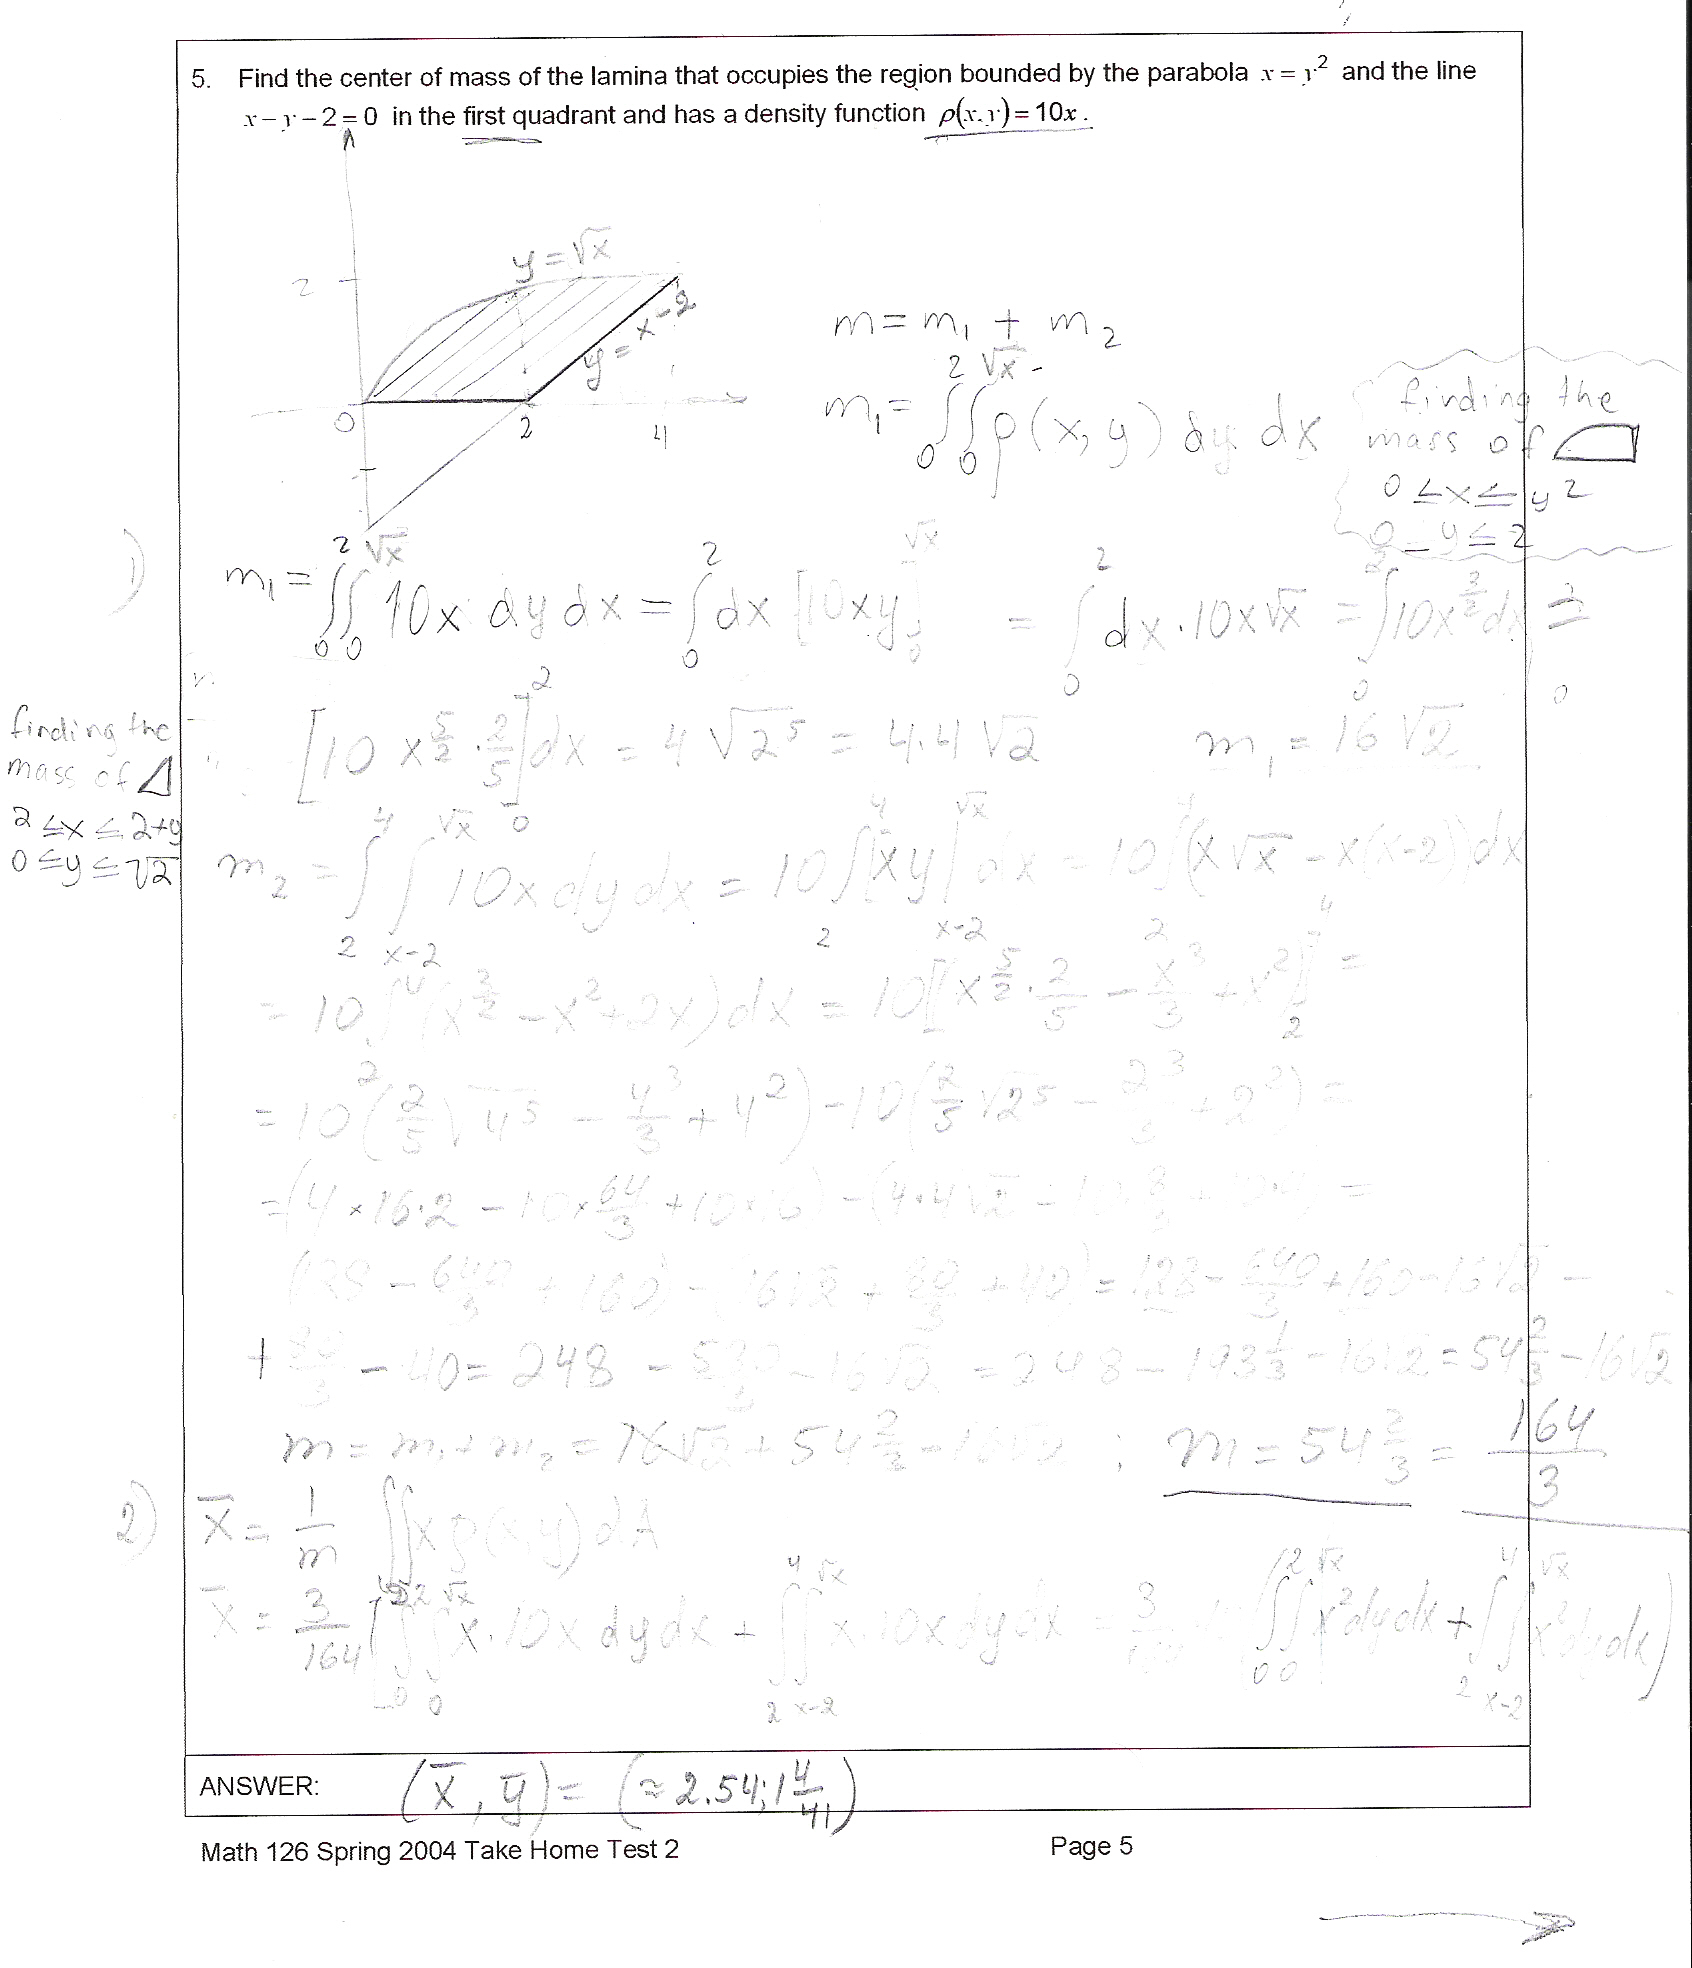 5. Find the center of mass of the lamina that occupies the region bounded by the parabola x = y² and the line
x − y − 2 = 0 in the first quadrant and has a density function ρ(x, y) = 10x.
y = √x
2
y = x − 2
0 2 4
m = m₁ + m₂
m₁ = ∫₀² ∫₀^√x ρ(x, y) dy dx
finding the
mass of
0 ≤ x ≤ y²
0 ≤ y ≤ 2
1) m₁ = ∫₀² ∫₀^√x 10x dy dx = ∫₀² dx [10xy]₀^√x = ∫₀² dx · 10x√x = ∫₀² 10x^(3/2) dx =
[10 x^(5/2) · 2/5]₀² dx = 4√2⁵ = 4·4√2 m₁ = 16√2
finding the
mass of
2 ≤ x ≤ 2+y
0 ≤ y ≤ √2
m₂ = ∫₂⁴ ∫_(x−2)^√x 10x dy dx = 10 ∫₂⁴ [xy]_(x−2)^√x dx = 10 ∫₂⁴ (x√x − x(x−2)) dx
= 10 ∫₂⁴ (x^(3/2) − x² + 2x) dx = 10 [x^(5/2) · 2/5 − x³/3 + x²]₂⁴ =
= 10 (2/5 √4⁵ − 4³/3 + 4²) − 10 (2/5 √2⁵ − 2³/3 + 2²) =
= (4 × 16·2 − 10 × 64/3 + 10 × 16) − (4·4√2 − 10 · 8/3 + 10·4) =
(128 − 640/3 + 160) − (16√2 + 80/3 + 40) = 128 − 640/3 + 160 − 16√2 −
+ 80/3 − 40 = 248 − 580/3 − 16√2 = 248 − 193 1/3 − 16√2 = 54 2/3 − 16√2
m = m₁ + m₂ = 16√2 + 54 2/3 − 16√2 ; m = 54 2/3 = 164/3
2) x̄ = 1/m ∬ x ρ(x, y) dA
x̄ = 3/164 [∫₀² ∫₀^√x x · 10x dy dx + ∫₂⁴ ∫_(x−2)^√x x · 10x dy dx = 3/164 (∫₀² ∫₀^√x x² dy dx + ∫₂⁴ ∫_(x−2)^√x x² dy dx)
ANSWER: (x̄, ȳ) = (≈ 2.54; 1 4/41)
Math 126 Spring 2004 Take Home Test 2 Page 5